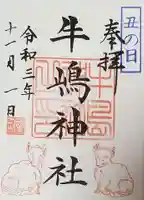 丑の日
奉拝
牛嶋神社
令和三年
十一月一日